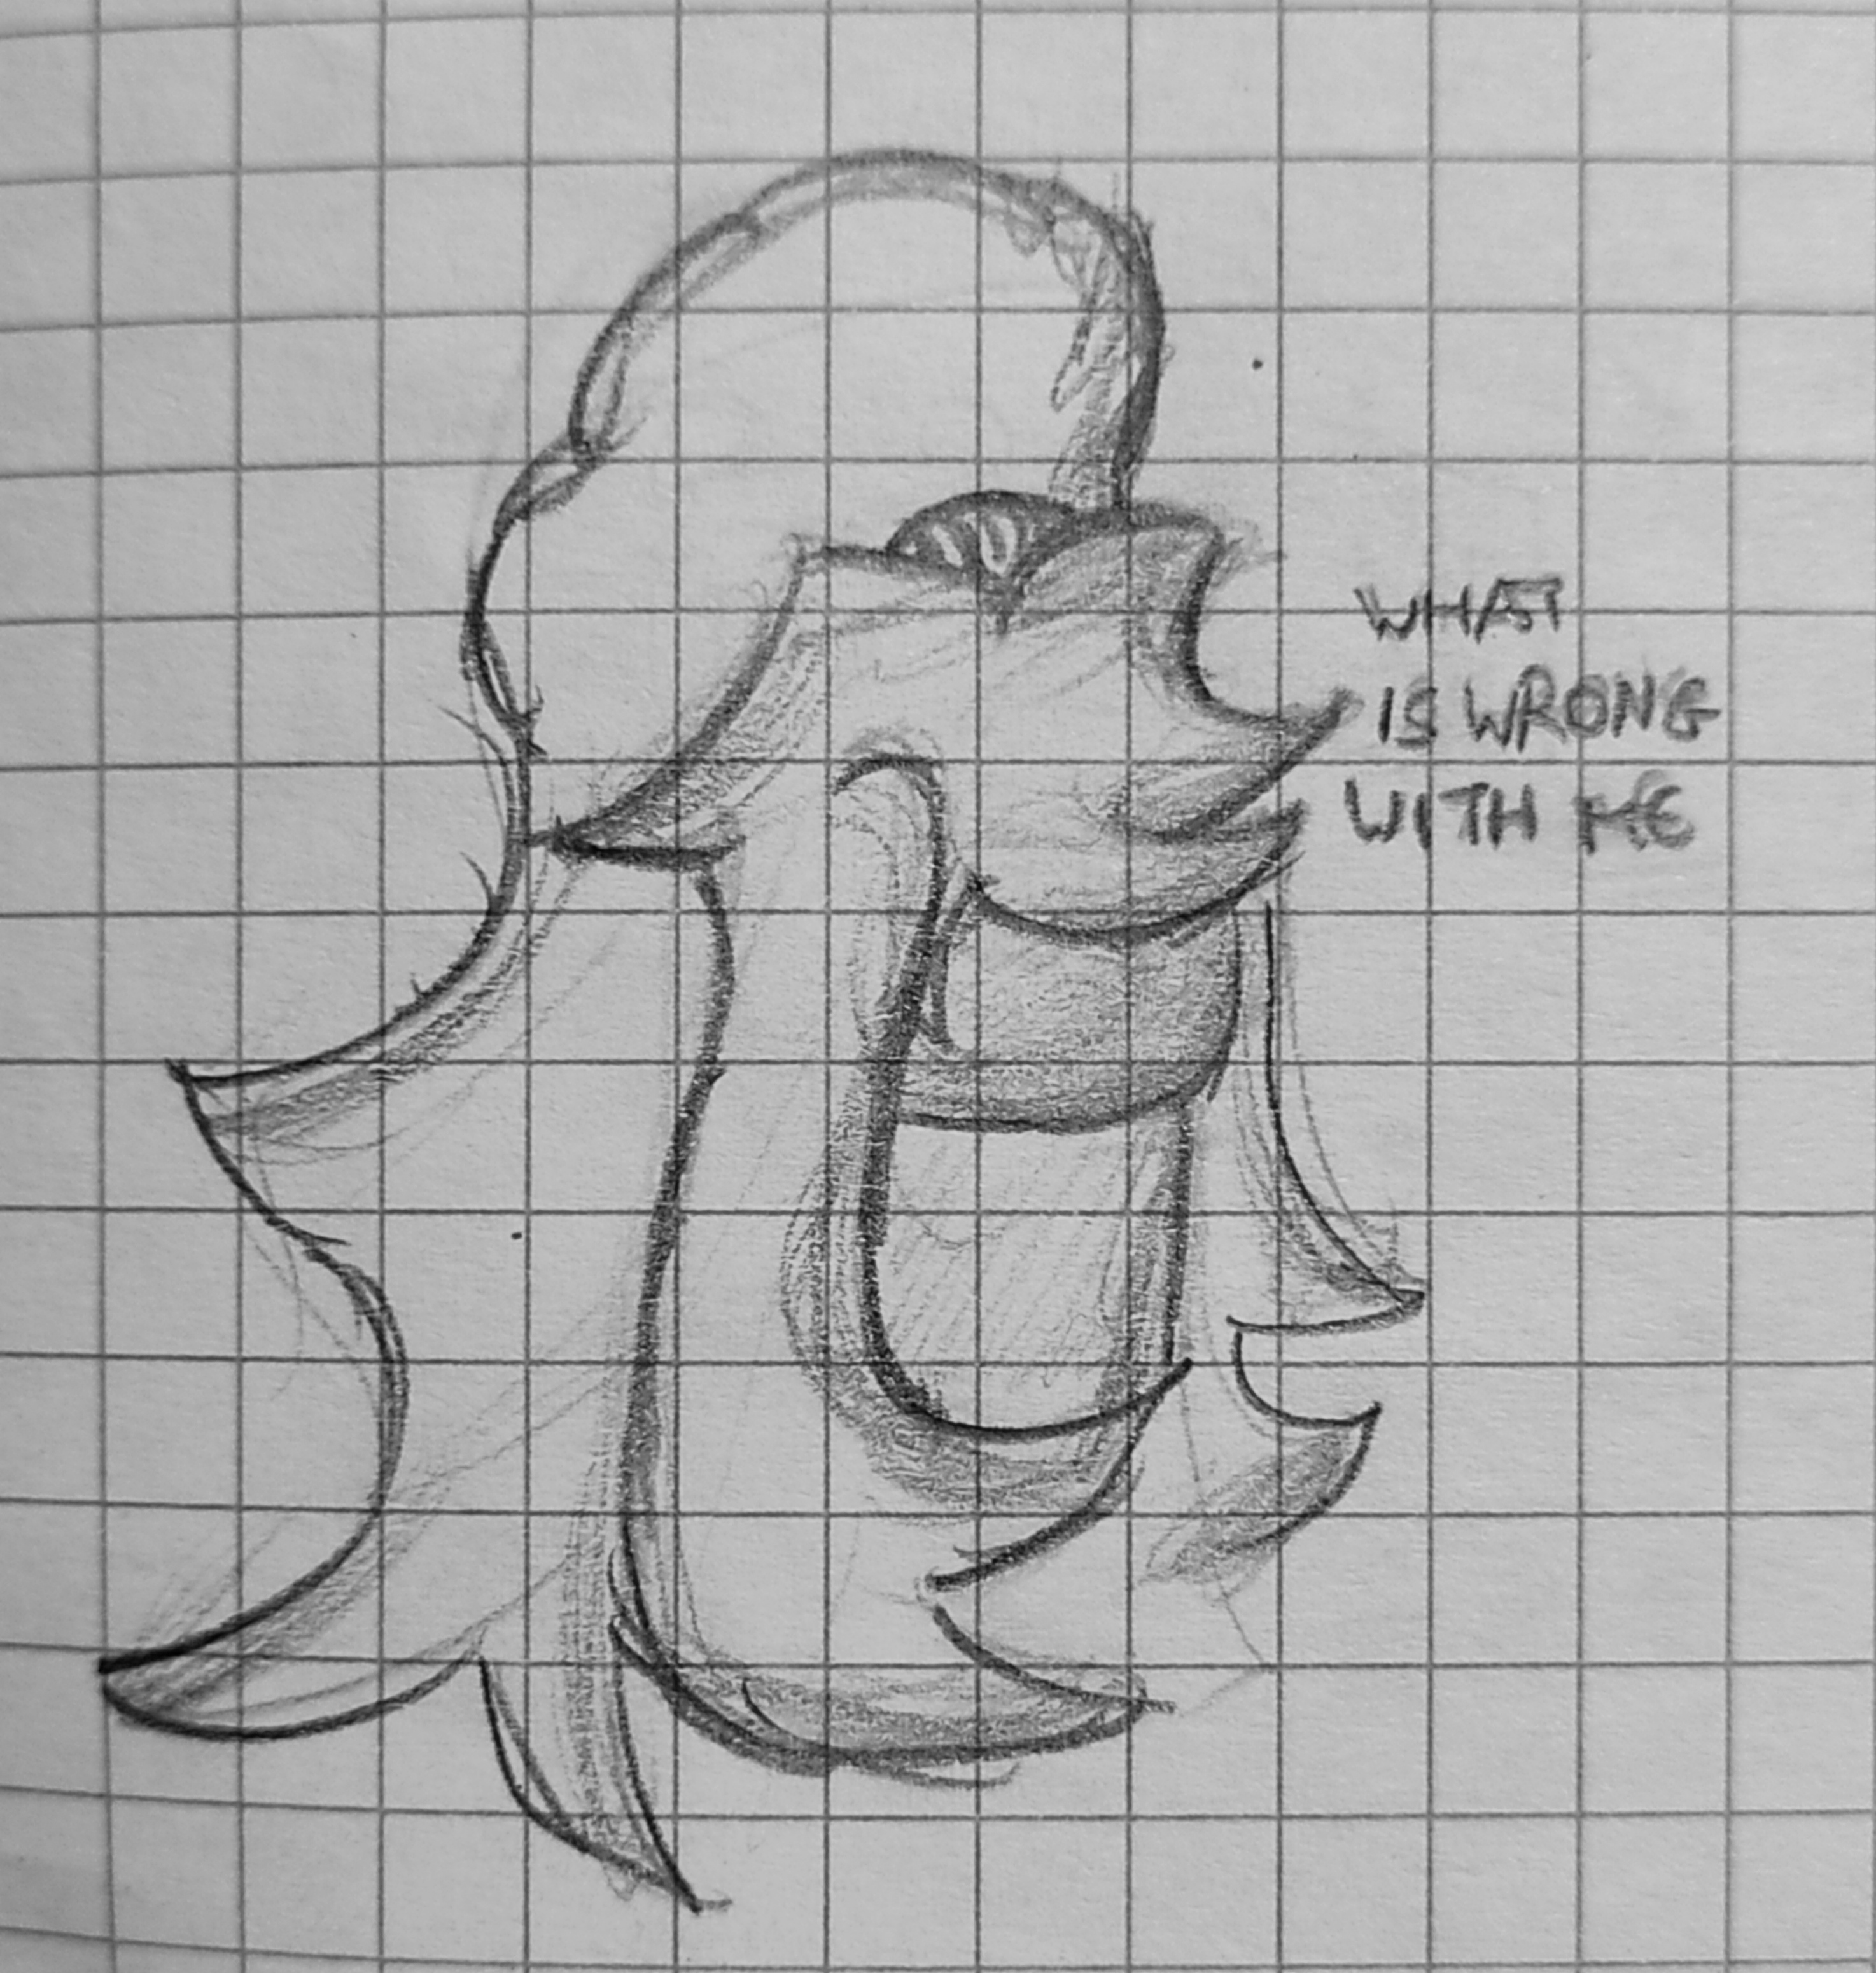 WHAT
IS WRONG
WITH ME